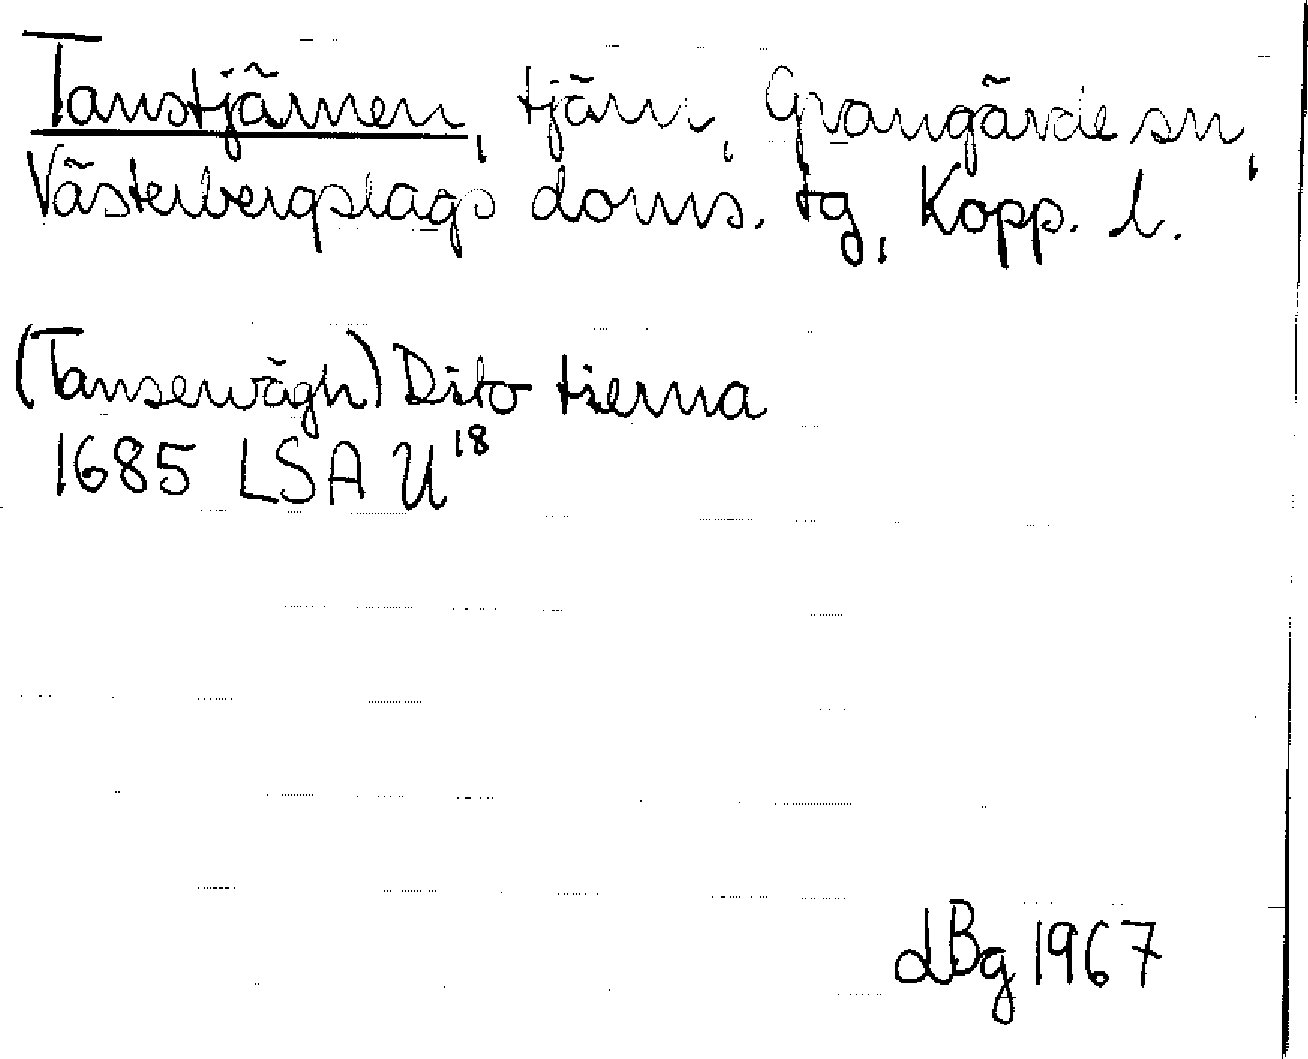 Tanstjärnen, tjärn, Grangärde sn,
Västerbergslags doms. tg, Kopp. l.
(Tanserwägh) Dito tierna
1685 LSA U18
LBg 1967